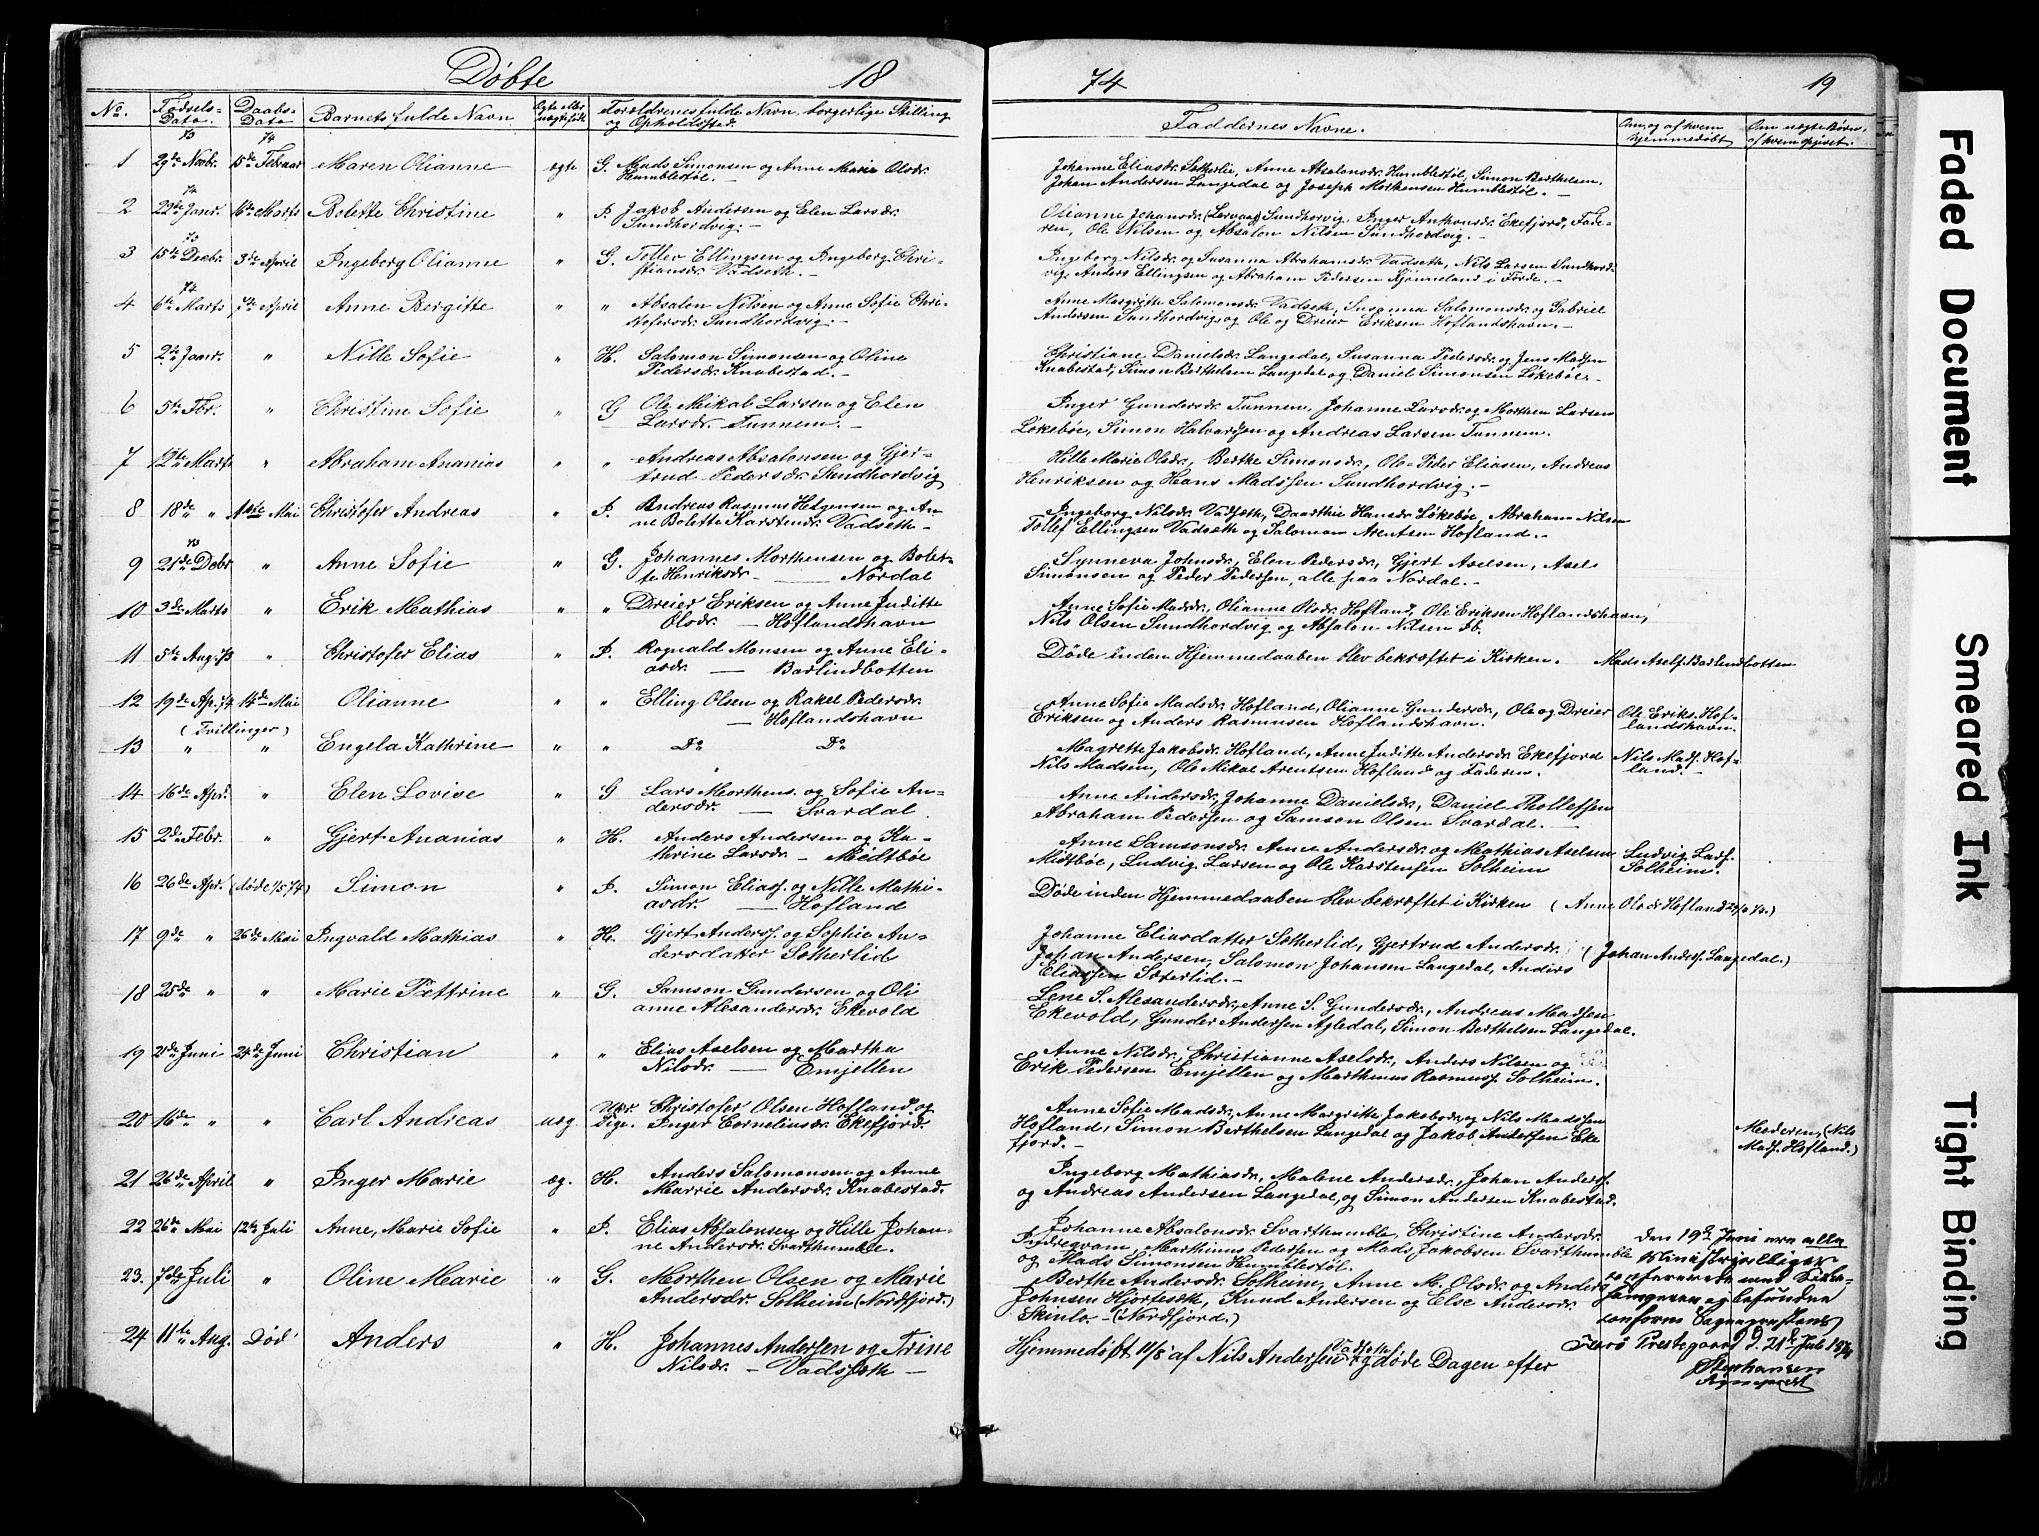 Døbte 18 74 19
No. Fødsels-Dato. Daabs-Dato Barnets fulde Navn Ægte eller uægtefødt Forældrenes fulde Navn, borgerlige Stilling og Opholdssted. Faddernes Navne. Om, og af hvem hjemmedøbt Om uægte Børn, af hvem opgivet.
73 74
1 29de Novb. 15de Februar Maren Olianne ægte G. Mads Simonsen og Anne Marie Olsdr.
Humblestøl.
Johanne Eliasdr. Sætherlie, Anne Absalonsdr. Humblestøl, Simon Berthelsen,
Johan Andersen Langedal og Joseph Morkensen Humblestøl. -
74
2 22de Janr. 16de Marts Bolette Christine " P. Jakob Andersen og Elen Larsdr.
Sundhordvig. -
Olianne Johansdr. (Lervaag) Sundhorvig, Inger Anthonsdr. Ekefjord, Fade-
ren, Ole Nilsen og Absalon Nilsen Sundhordvig. -
73
3 15de Decbr. 3de April Ingeborg Olianne " G. Tollef Ellingsen og Ingeborg Chri-
stiansdr. Vadseth. -
Ingeborg Nilsdr. og Susanna Abrahamsdr. Vadseth, Nils Larsen Sundhord-
vig, Anders Ellingsen og Abraham Pedersen Hjønneland i Førde. -
74
4 6te Marts 7de April Anne Bergitte " " Absalon Nilsen og Anne Sofie Chri-
stofersdr. Sundhordvig. -
Anne Margritte Salomonsdr. Vadseth, Susanna Salomonsdr. og Gabriel
Andersen Sundhordvig, og Ole og Dreier Eriksen Hoflandshavn. -
5 2de Janr. " Nille Sofie " H. Salomon Simonsen og Oline
Pedersdr. Knabestad. -
Christiane Danielsdr. Langedal, Susanna Pedersdr. og Jens Madsen
Knabestad, Simon Berthelsen Langedal og Daniel Simonsen Løkebøe. -
6 5te Fbr. " Christine Sofie " G Ole Mikal Larsen og Elen
Larsdr. Tunnem. -
Inger Gundersdr. Tunnem, Johanne Larsdr. og Morthen Larsen
Løkebøe, Simon Halvardsen og Andreas Larsen Tunnem.
7 12te Marts " Abraham Ananias " " Andreas Absalonsen og Gjer-
trud Pedersdr. Sundhordvig
Hille Marie Olsdr., Berthe Simonsdr., Ole Peder Eliasen, Andreas
Henriksen og Hans Madssen Sundhordvig. -
8 18de " Mai Christofer Andreas " P. Andreas Rasmus Helgensen og An
ne Bolette Karstendr. Vadseth. -
Ingeborg Nilsdr. Vadseth, Daarthie Hansdr. Løkebøe, Abraham Nilsen
Tollef Ellingsen Vadseth og Salomon Arentsen Hofland. -
73
9 21de Debr. " Anne Sofie " G. Johannes Morthensen og Bolet-
te Henriksdr. - Nordal
Synneva Johnsdr., Elen Pedersdr., Gjert Axelsen, Axel
Simonsen og Peder Pedersen, alle paa Nordal. -
10 3de Marts " Erik Mathias " " Dreier Eriksen og Anne Juditte
Olsdr. - Hoflandshavn
Anne Sofie Madsdr., Olianne Olsdr. Hofland, Ole Eriksen Hoflandshavn,
Nils Olsen Sundhordvig og Absalon Nilsen ib.
11 5te Aug. 73 " Christofer Elias " P. Rognald Monsen og Anne Eli-
asdr. - Barlindbotten
Døde inden Hjemmedaaben blev bekræftet i Kirken. Mads Axels. Barlindbotten
12 19de Ap. 74 14de Mai Olianne " " Elling Olsen og Rakel Pedersdr.
- Hoflandshavn
Anne Sofie Madsdr. Hofland, Olianne Gundersdr., Ole og Dreier
Eriksen og Anders Rasmussen Hoflandshavn.
Ole Eriks. Hof-
landshavn.
(Tvillinger)
13 " " Engela Kathrine " " Do Do
Magrette Jakobsdr. Hofland, Anne Juditte Andersdr. Ekefjord
Nils Madsen, Ole Mikal Arentsen Hofland og Faderen.
Nils Mads. Hof-
land. -
14 16de Apr. " Elen Lovise " G Lars Morthens. og Sofie An-
dersdr. - Svardal
Anne Andersdr., Johanne Danielsdr., Daniel Thollefsen
Abraham Pedersen og Samson Olsen Svardal. -
15 2de Febr. " Gjert Ananias " H. Anders Andersen og Ka-
thrine Larsdr. - Midtbøe
Anne Samsonsdr., Anne Andersdr. og Mathias Axelsen
Midtbøe, Ludvig Larsen og Ole Karstensen Solheim
Ludvig Lars.
Solheim.
16 26de Apr. (døde /5 74) Simon " P. Simon Elias. og Nille Mathi-
asdr. - Hofland
Døde inden Hjemmedaaben blev bekræftet i Kirken (Anne Olsdr. Hofland)
17 9de " 26de Mai Ingvald Mathias " H. Gjert Anders. og Sophie An-
dersdatter Sætherlid
Johanne Eliasdatter Sætherlid, Gjertrud Andersdr. (Johan Anders. Langedal.)
Johan Andersen, Salomon Johansen Langedal, Anders
Eliassen Sæterlid. -
18 25de " " Marie Pættrine " G. Samson Gundersen og Oli
anne Alexandersdr. Ekevold
Lene S. Alexandersdr., Anne S. Gundersdr., Andreas Madsen
Ekevold, Gunder Andersen Agledal, Simon Berthelsen Langedal.
19 2de Juni 24de Juni Christian " " Elias Axelsen og Martha
Nilsdr. - Emjellen
Anne Nilsdr., Christianne Axelsdr., Anders Nilsen og
Erik Pedersen Emjellen og Marthinus Rasmuss. Solheim.
20 16de " " Carl Andreas uæg. Ukr. Christofer Olsen Hofland og
Pige. Inger Corneliusdr. Ekefjord.
Anne Sofie Madsdr., Anne Margritte Jakobsdr. og Nils Madssen
Hofland, Simon Berthelsen Langedal og Jakob Andersen Eke
fjord. -
Moderen, (Nils
Mads. Hofland.)
21 26de April " Inger Marie æg. H. Anders Salomonsen og Anne
Marrie Andersdr. Knabestad.
Ingeborg Mathiasdr., Malene Andersdr., Johan Anders.
og Andreas Andersen Langedal, og Simon Andersen Knabestad.
22 26de Mai 12te Juli Anne, Marie Sofie " P. Elias Absalonsen og Hille Johan-
ne Andersdr. Svarthumle.
Johanne Absalonsdr. Svarthumble, Christine Andersdr.
Indreqvam, Marthinus Pedersen og Mads Jakobsen Svarthumble
og Mads Simonsen Humblestøl.
23. 7de Juli " Oline Marie " G. Morthen Olsen og Marie
Andersdr. Solheim (Nordfjord.)
Berthe Andersdr. Solheim, Anne M. Olsdr. og Anders
Johnsen Hjorteseth, Knud Andersen og Else Andersdr.
Skinlo. - (Nordfjord.)
24 11te Aug. Død Anders " H. Johannes Andersen og Trine
Nilsdr. - Vadsseth -
Hjemmedøbt 11/8 af Nils Andersen Vadseth og døde Dagen efter
Den 19de Juni ere alle
Ministerialbøger
confererede med Kirke-
sangeren og befundne
conforme
Prestegaard d. 21de Juli 1874
Stephansen
Faded Document
Smeared Ink
Tight Binding